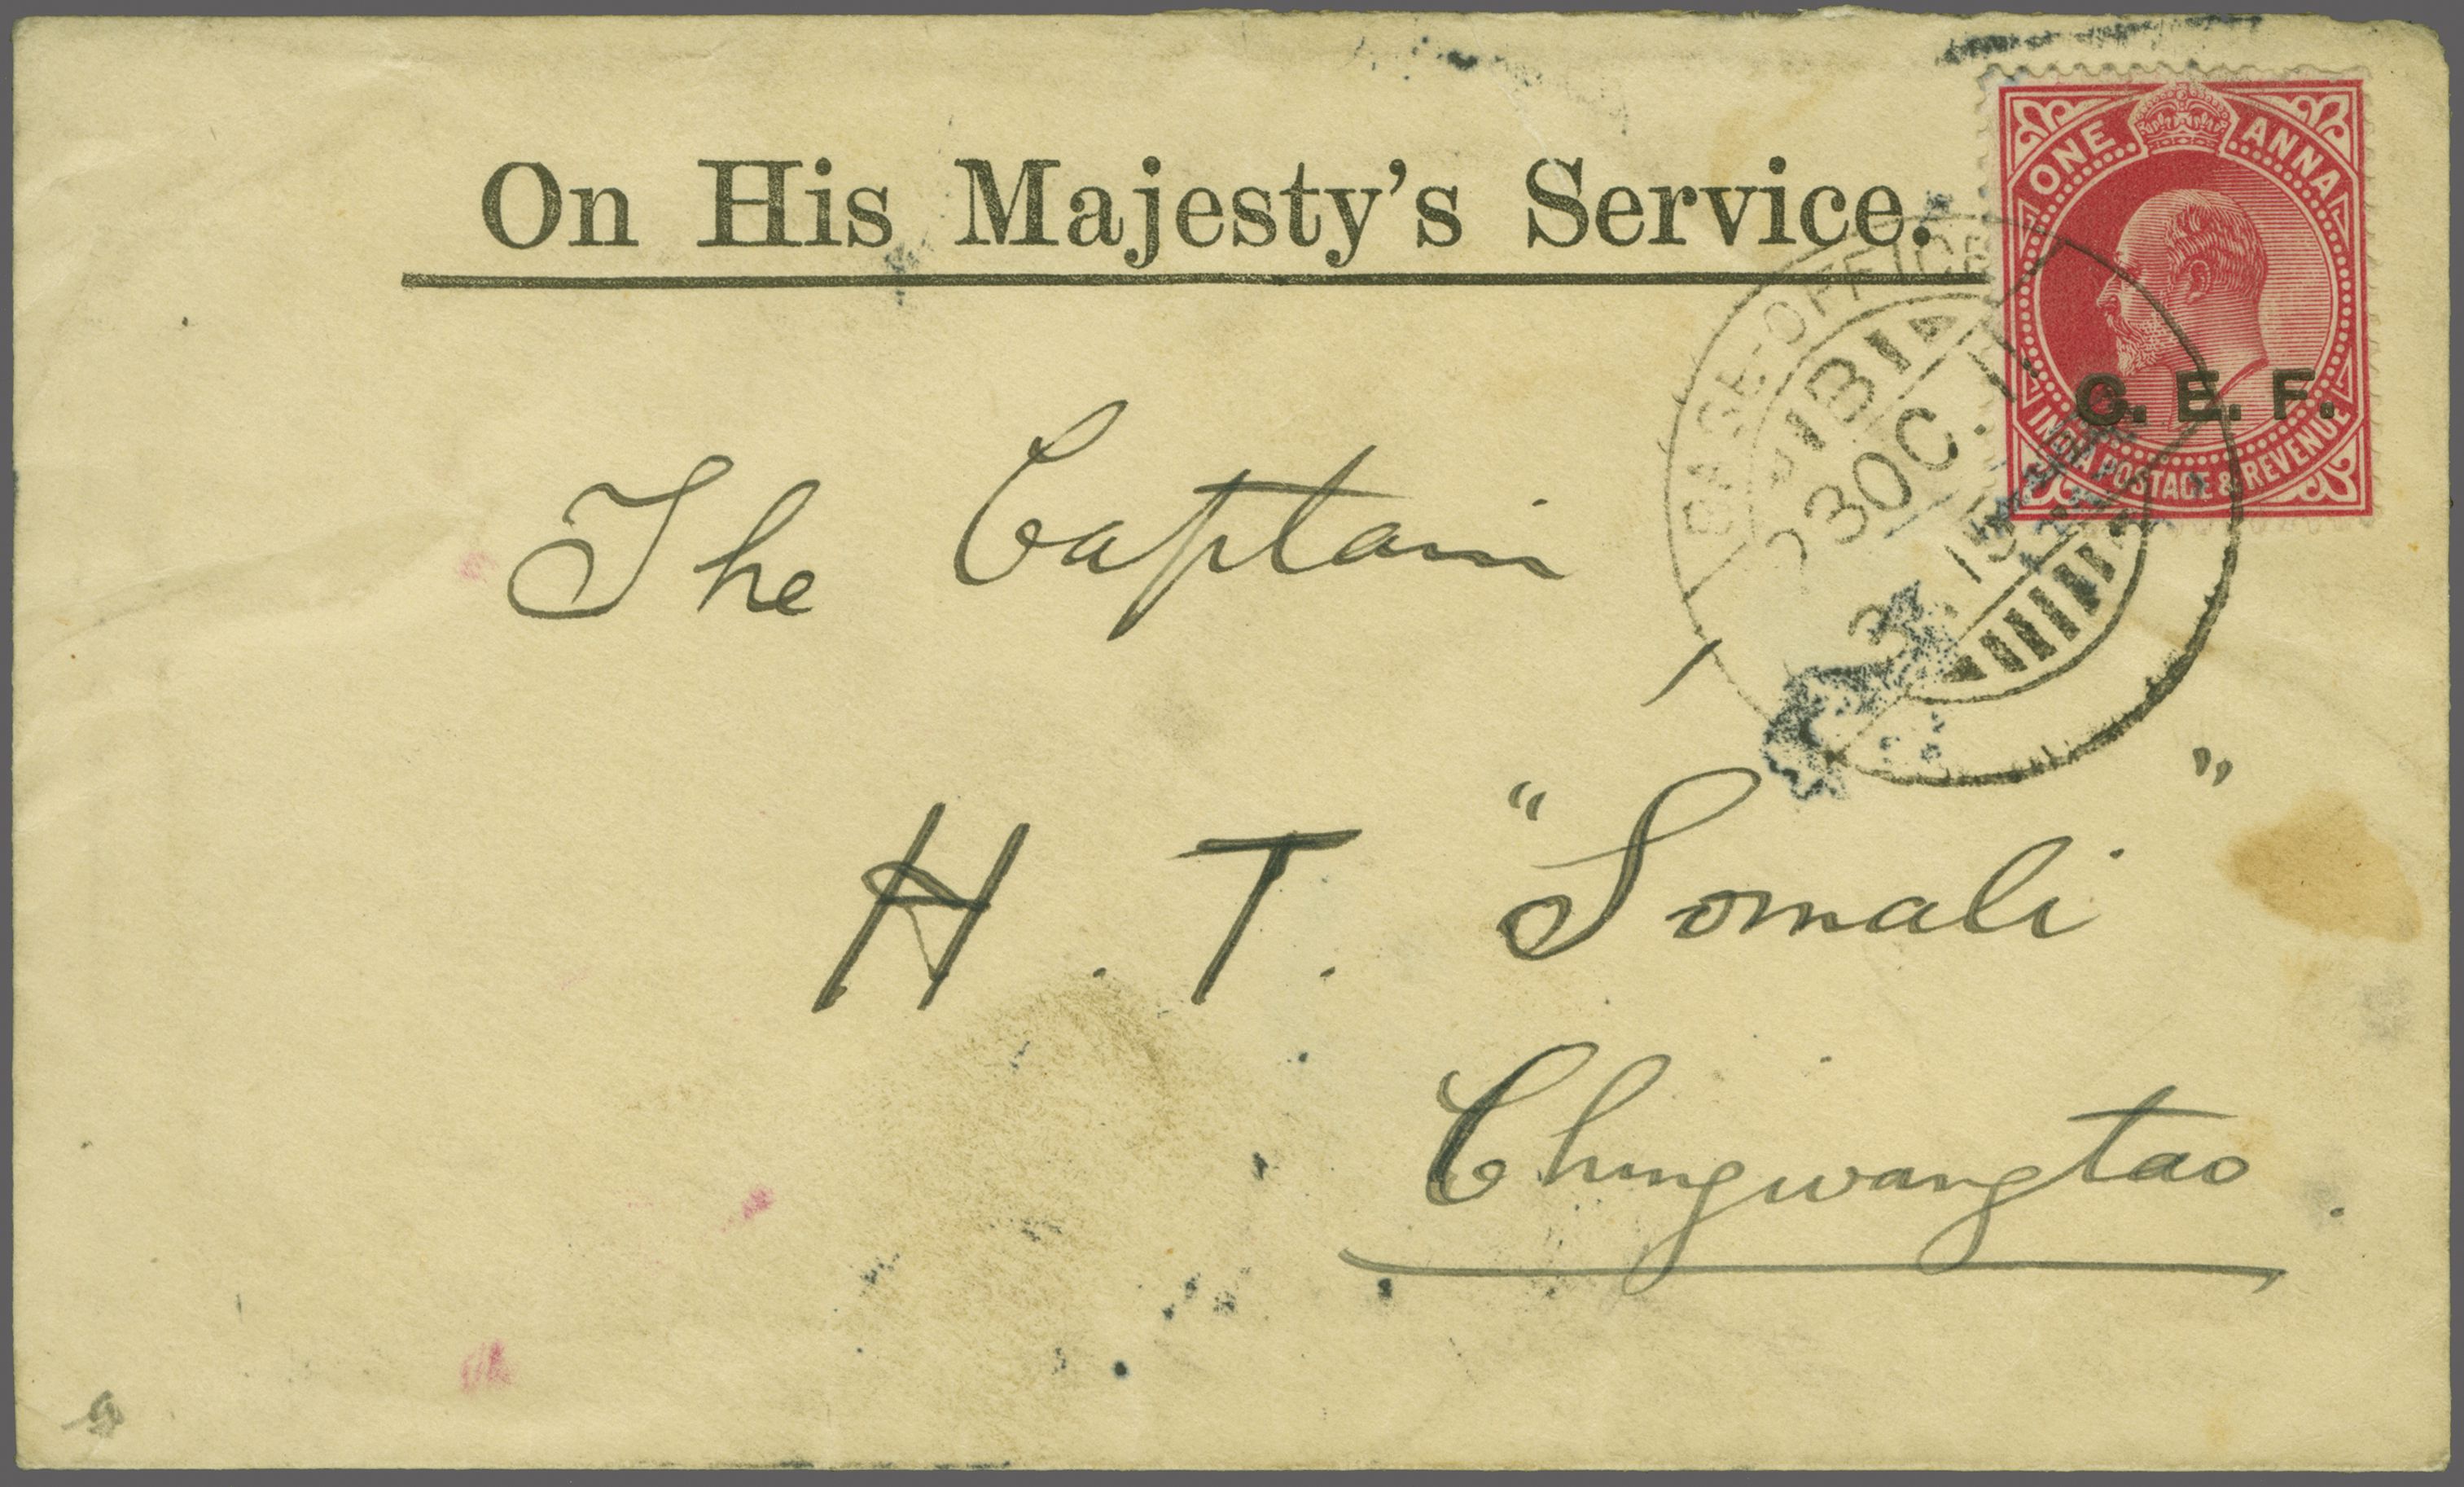 On His Majesty's Service.
ONE ANNA
C. E. F.
INDIA POSTAGE & REVENUE
BASE-OFFICE
23 OC.
3 .15
The Captain
H. T. "Somali"
Chingwangtao.